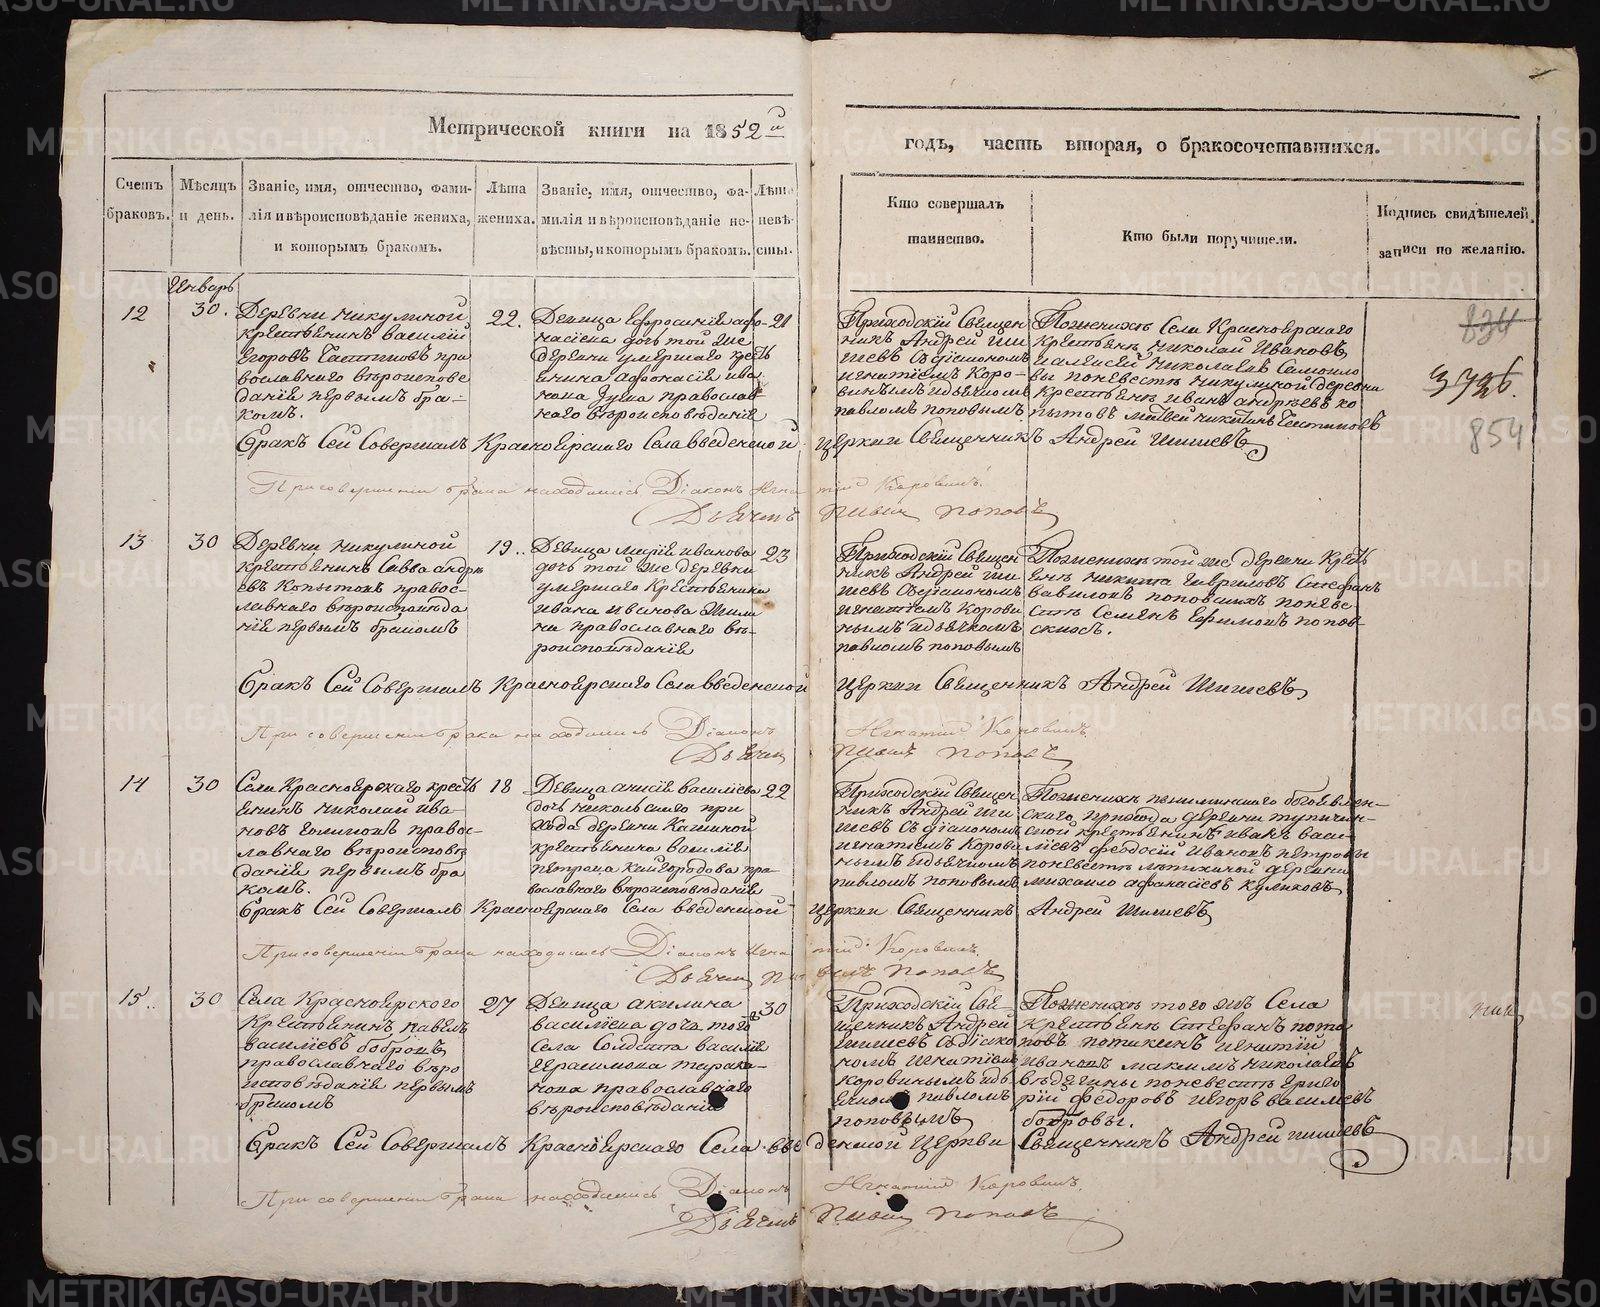 Метрической книги на 1852й
годъ, часть вторая, о бракосочетавшихся.
Счетъ браковъ.
Мѣсяцъ и день.
Званіе, имя, отчество, фамилія и вѣроисповѣданіе жениха, и которымъ бракомъ.
Лѣта жениха.
Званіе, имя, отчество, фамилія и вѣроисповѣданіе невѣсты, и которымъ бракомъ.
Лѣта невѣсты.
Кто совершалъ таинство.
Кто были поручители.
Подпись свидѣтелей записи по желанію.
Январь
12
30.
Деревни Никулиной
крестьянинъ Василій
Егоровъ
православнаго вѣроисповеданія первымъ бракомъ.
22.
Девица Ефросинія Афонасіева дочь той же
деревни умершаго крестьянина Афонасія Ивanова
православнаго вѣроисповѣданія
21
Приходскій Священникъ Андрей Шишевъ
Съ діакономъ
игнатіемъ Коровинымъ и дьячкомъ
павломъ поповымъ
Поженихѣ Села Красноярскаго
крестьяне Николай Ивановъ
и алексей Николаевъ Самойловы поневестѣ Никулиной деревни
крестьяне Иванъ андрѣевъ Копытовъ матвей никитинъ
834
3726.
854
Бракъ Сей Совершалъ Красноярскаго Села введенской церкви Священникъ Андрей Шишевъ
При совершении брака находились Діаконъ Игнатий Коровинъ.
Дьячекъ Павелъ Поповъ
13
30
Деревни Никулиной
крестьянинъ Савва андреевъ Копытовъ православнаго вѣроисповѣданія первымъ бракомъ
19..
Девица Марія иванова
дочь той же деревни
умершаго Крестьянина
ивана иванова
православнаго вѣроисповѣданія
23
Приходскій Священникъ Андрей Шишевъ Съ діакономъ
игнатіемъ Коровинымъ и дьячкомъ
павломъ поповымъ
Поженихѣ той же деревни Крестьяне никита гавриловъ Стефанъ
вавиловъ поповыхъ поневестѣ Семенъ Ефимовъ
Бракъ Сей Совершалъ Красноярскаго Села введенской церкви Священникъ Андрей Шишевъ
При совершении брака находились Діаконъ Игнатий Коровинъ.
Дьячекъ Павелъ Поповъ
14
30
Села Красноярскаго крестьянинъ николай ивановъ
православнаго вѣроисповѣданія первымъ бракомъ.
18
Девица анисія василіева
дочь никольскаго прихода деревни Кашиной
крестьянина василія
петрова Кайгородова православнаго вѣроисповѣданія
22
Приходскій Священникъ Андрей Шишевъ Съ діакономъ
игнатіемъ Коровинымъ и дьячкомъ
павломъ поповымъ
Поженихѣ пышминскаго богоявленскаго прихода деревни
крестьянинъ иванъ василіевъ федосій Ивановъ петровы
поневестѣ деревни
михаило афанасіевъ куликовъ
Бракъ Сей Совершалъ Красноярскаго Села введенской церкви Священникъ Андрей Шишевъ
При совершении брака находились Діаконъ Игнатий Коровинъ.
Дьячекъ Павелъ Поповъ
15..
30
Села Красноярского
крестьянинъ павелъ
василіевъ бобровъ
православнаго вѣроисповѣданія первымъ
бракомъ
27
Девица акилина
василіева дочь того же
Села Солдата василія
Герасимова
православнаго
вѣроисповѣданія
30
Приходскій Священникъ Андрей
Шишевъ Съ діакономъ игнатіемъ
коровинымъ и дьячкомъ павломъ
поповымъ
Поженихѣ того жъ Села
крестьяне Стефанъ потаповъ игнатій
ивановъ максимъ николаевъ
поневестѣ григорій федоровъ игоръ василіевъ
бобровы.
Бракъ Сей Совершалъ Красноярскаго Села введенской Церкви Священникъ Андрей шишевъ
При совершении брака находились Діаконъ Игнатий Коровинъ.
Дьячекъ Павелъ Поповъ
METRIKI.GASO-URAL.RU